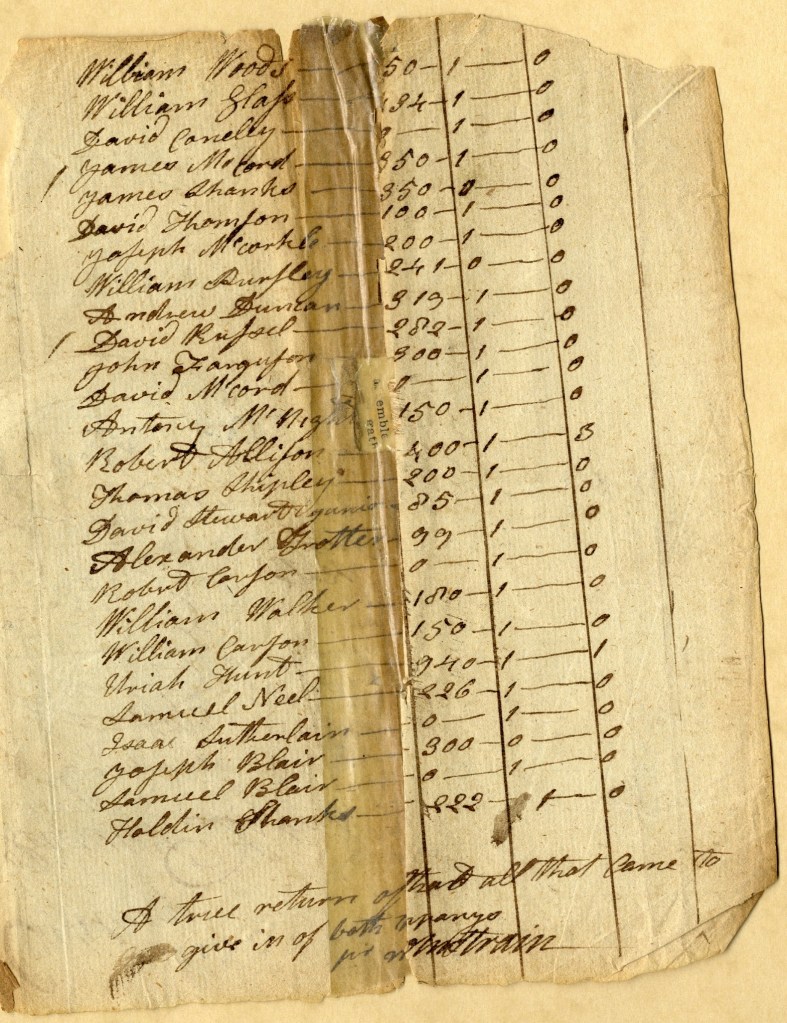 William Woods — 50 — 1 — 0
William Glass — 434 — 1 — 0
David Coneley — 0 — 1 — 0
/ James McCord — 350 — 1 — 0
James Shanks — 350 — 0 — 0
David Thomson — 100 — 1 — 0
Joseph McCorkle — 200 — 1 — 0
William — 241 — 0 — 0
Andrew Duncan — 319 — 1 — 0
/ David Russel — 282 — 1 — 0
John Farguson — 300 — 1 — 0
David McCord — 0 — 1 — 0
Antony McNight 150 — 1 — 0
Robert Allison — 400 — 1 — 3
Thomas Shipley — 200 — 1 — 0
David Stewart Junior 85 — 1 — 0
Alexander Trotter — 99 — 1 — 0
Robert Carson — 0 — 1 — 0
William Walker — 180 — 1 — 0
William Carson — 150 — 1 — 0
Uriah Hunt — 940 — 1 — 1
Samuel Neel — 226 — 1 — 0
Isaac Sutherlain — 0 — 1 — 0
Joseph Blair — 300 — 0 — 0
Samuel Blair — 0 — 1 — 0
Holdin Shanks — 222 — 1 — 0
A true return of that all that Came to
give in of both
pr